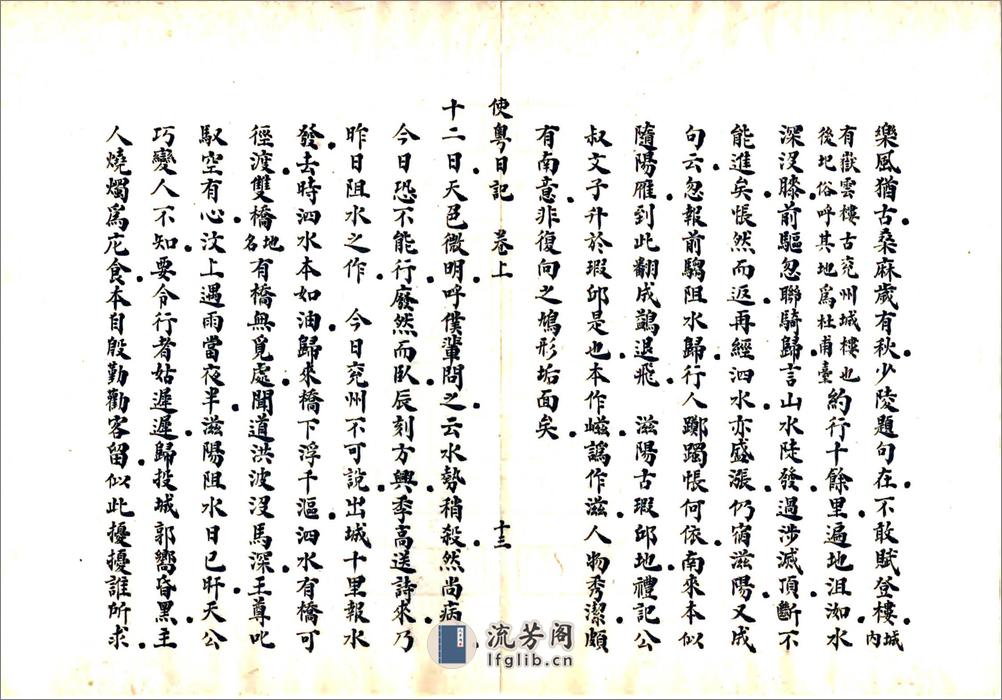 樂風猶古桑麻歲有秋少陵題句在不敢賦登樓城內
有嶽雲樓古兖州城樓也
後圮俗呼其地爲杜甫臺
約行十餘里遍地沮洳水
深沒膝前驅忽聯騎歸言山水陡發過涉滅頂斷不
能進矣悵然而返再經泗水亦盛漲仍宿滋陽又成
句云忽報前騶阻水歸行人躑躅悵何依南來本似
隨陽雁到此翻成鷁退飛 滋陽古瑕邱地禮記公
叔文子升於瑕邱是也本作嵫譌作滋人物秀潔頗
有南意非復向之鳩形垢面矣
使粵日記 卷上 十三
十二日天色微明呼僕輩問之云水勢稍殺然尚病
今日恐不能行廢然而臥辰刻方興季高送詩來乃
昨日阻水之作 今日兖州不可說出城十里報水
發去時泗水本如油歸來橋下浮千漚泗水有橋可
徑渡雙橋地名有橋無覓處聞道洪波沒馬深王尊叱
馭空有心汶上遇雨當夜半滋陽阻水日已旰天公
巧變人不知要令行者姑遲遲歸投城郭嚮昏黑主
人燒燭爲庀食本自殷勤勸客留似此擾擾誰所求
流芳阁
lfglib.cn